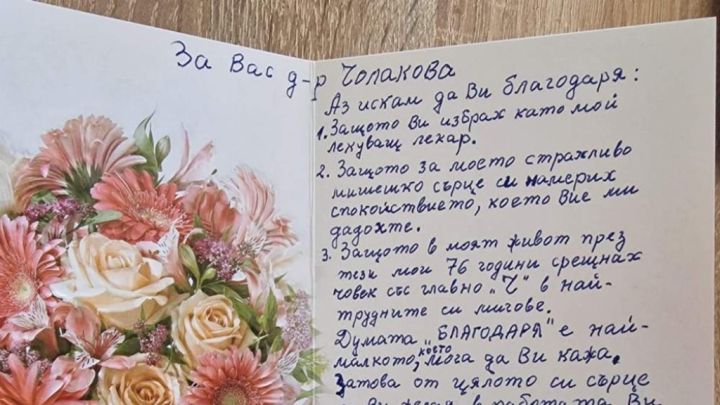 За Вас д-р Чолакова
Аз искам да Ви благодаря:
1. Защото Ви избрах като мой
лекуващ лекар.
2. Защото за моето страхливо
мишешко сърце си намерих
спокойствието, което Вие ми
дадохте.
3. Защото в моят живот през
тези мои 76 години срещнах
човек със главно "Ч" в най-
трудните си мигове.
Думата "БЛАГОДАРЯ" е най-
малкото, което мога да Ви кажа.
Затова от цялото си сърце
Ви работата Ви